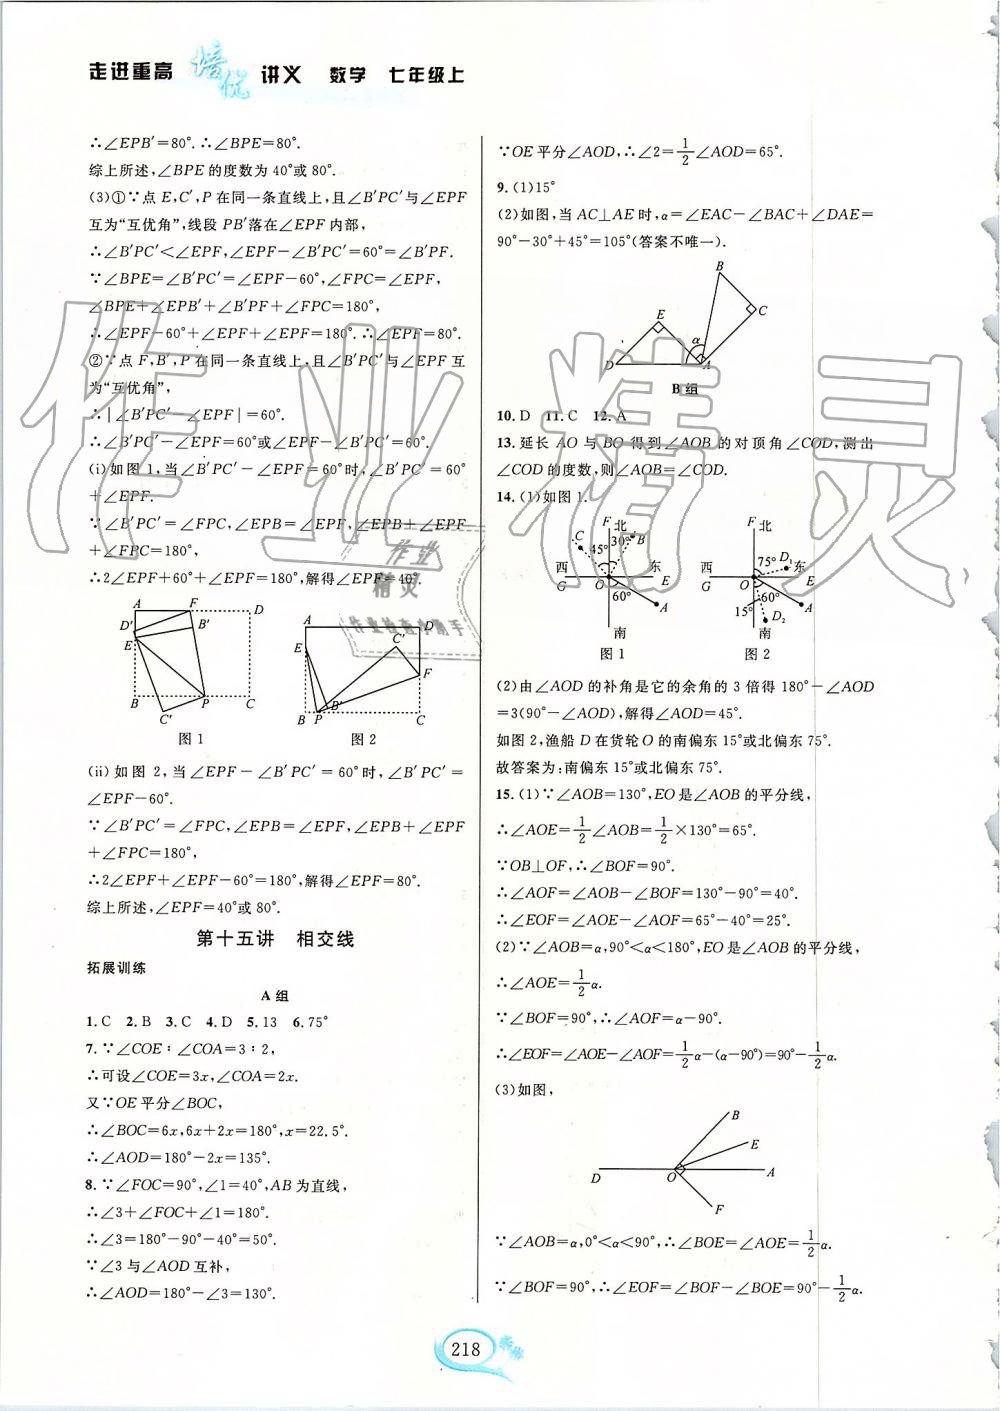 走进重高 培优 讲义 数学 七年级上
∴∠EPB′=80°.∴∠BPE=80°.
综上所述,∠BPE的度数为40°或80°.
(3)①∵点E,C′,P在同一条直线上,且∠B′PC′与∠EPF
互为“互优角”,线段PB′落在∠EPF内部,
∴∠B′PC′<∠EPF,∠EPF-∠B′PC′=60°=∠B′PF.
∵∠BPE=∠B′PC′=∠EPF-60°,∠FPC=∠EPF,
∠BPE+∠EPB′+∠B′PF+∠FPC=180°,
∴∠EPF-60°+∠EPF+∠EPF=180°.∴∠EPF=80°.
②∵点F,B′,P在同一条直线上,且∠B′PC′与∠EPF互
为“互优角”,
∴|∠B′PC′-∠EPF|=60°.
∴∠B′PC′-∠EPF=60°或∠EPF-∠B′PC′=60°.
(i)如图1,当∠B′PC′-∠EPF=60°时,∠B′PC′=60°
+∠EPF.
∵∠B′PC′=∠FPC,∠EPB=∠EPF,∠EPB+∠EPF
+∠FPC=180°,
∴2∠EPF+60°+∠EPF=180°,解得∠EPF=40°.
A F D
D′ B′
E
B P C
C′
图1
A D
C′
E
F
B P B′ C
图2
(ii)如图2,当∠EPF-∠B′PC′=60°时,∠B′PC′=
∠EPF-60°.
∵∠B′PC′=∠FPC,∠EPB=∠EPF,∠EPB+∠EPF
+∠FPC=180°,
∴2∠EPF+∠EPF-60°=180°,解得∠EPF=80°.
综上所述,∠EPF=40°或80°.
第十五讲 相交线
拓展训练
A组
1.C 2.B 3.C 4.D 5.13 6.75°
7.∵∠COE∶∠COA=3∶2,
∴可设∠COE=3x,∠COA=2x.
又∵OE平分∠BOC,
∴∠BOC=6x,6x+2x=180°,x=22.5°.
∴∠AOD=180°-2x=135°.
8.∵∠FOC=90°,∠1=40°,AB为直线,
∴∠3+∠FOC+∠1=180°.
∴∠3=180°-90°-40°=50°.
∵∠3与∠AOD互补,
∴∠AOD=180°-∠3=130°.
∵OE平分∠AOD,∴∠2=1/2∠AOD=65°.
9.(1)15°
(2)如图,当AC⊥AE时,α=∠EAC-∠BAC+∠DAE=
90°-30°+45°=105°(答案不唯一).
B
C
E
α
D A
B组
10.D 11.C 12.A
13.延长AO与BO得到∠AOB的对顶角∠COD,测出
∠COD的度数,则∠AOB=∠COD.
14.(1)如图1.
F 北
C 45° 30° B
西 东
G O E
60° A
南
图1
F 北
75° D₁
西 东
G O E
15° 60° A
D₂
南
图2
(2)由∠AOD的补角是它的余角的3倍得180°-∠AOD
=3(90°-∠AOD),解得∠AOD=45°.
如图2,渔船D在货轮O的南偏东15°或北偏东75°.
故答案为:南偏东15°或北偏东75°.
15.(1)∵∠AOB=130°,EO是∠AOB的平分线,
∴∠AOE=1/2∠AOB=1/2×130°=65°.
∵OB⊥OF,∴∠BOF=90°.
∴∠AOF=∠AOB-∠BOF=130°-90°=40°.
∴∠EOF=∠AOE-∠AOF=65°-40°=25°.
(2)∵∠AOB=α,90°<α<180°,EO是∠AOB的平分线,
∴∠AOE=1/2α.
∵∠BOF=90°,∴∠AOF=α-90°.
∴∠EOF=∠AOE-∠AOF=1/2α-(α-90°)=90°-1/2α.
(3)如图,
B
E
D O A
F
∵∠AOB=α,0°<α<90°,∴∠BOE=∠AOE=1/2α.
∵∠BOF=90°,∴∠EOF=∠BOF-∠BOE=90°-1/2α.
218
作业精灵
作业
精灵
作业检查小助手